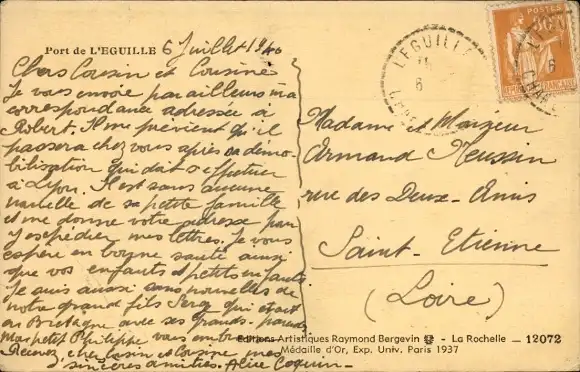 Port de L'EGUILLE 6 Juillet 1940
Chers Cousin et Cousine
Je vous envoie par ailleurs ma
correspondance adressée à
Robert. Il me prévient qu'il
passera chez vous après sa démo-
bilisation qui doit s'effectuer
à Lyon. Il est sans aucune
nouvelle de sa petite famille
et me donne votre adresse pour
y expédier mes lettres. Je vous
espère en bonne santé ainsi
que vos enfants et petits enfants
Je suis aussi sans nouvelles de
notre grand fils Serge qui était
en Bretagne avec ses grands-parents
Mon petit Philippe vous embrasse
Recevez, cher Cousin et Cousine mes
sincères amitiés. Alice Coquin
L'EGUILLE
6
POSTES
REPUBLIQUE FRANÇAISE
Madame et Monsieur
Armand
rue des Deux-Amis
Saint-Etienne
(Loire)
Editions Artistiques Raymond Bergevin - La Rochelle - 12072
Médaille d'Or, Exp. Univ. Paris 1937